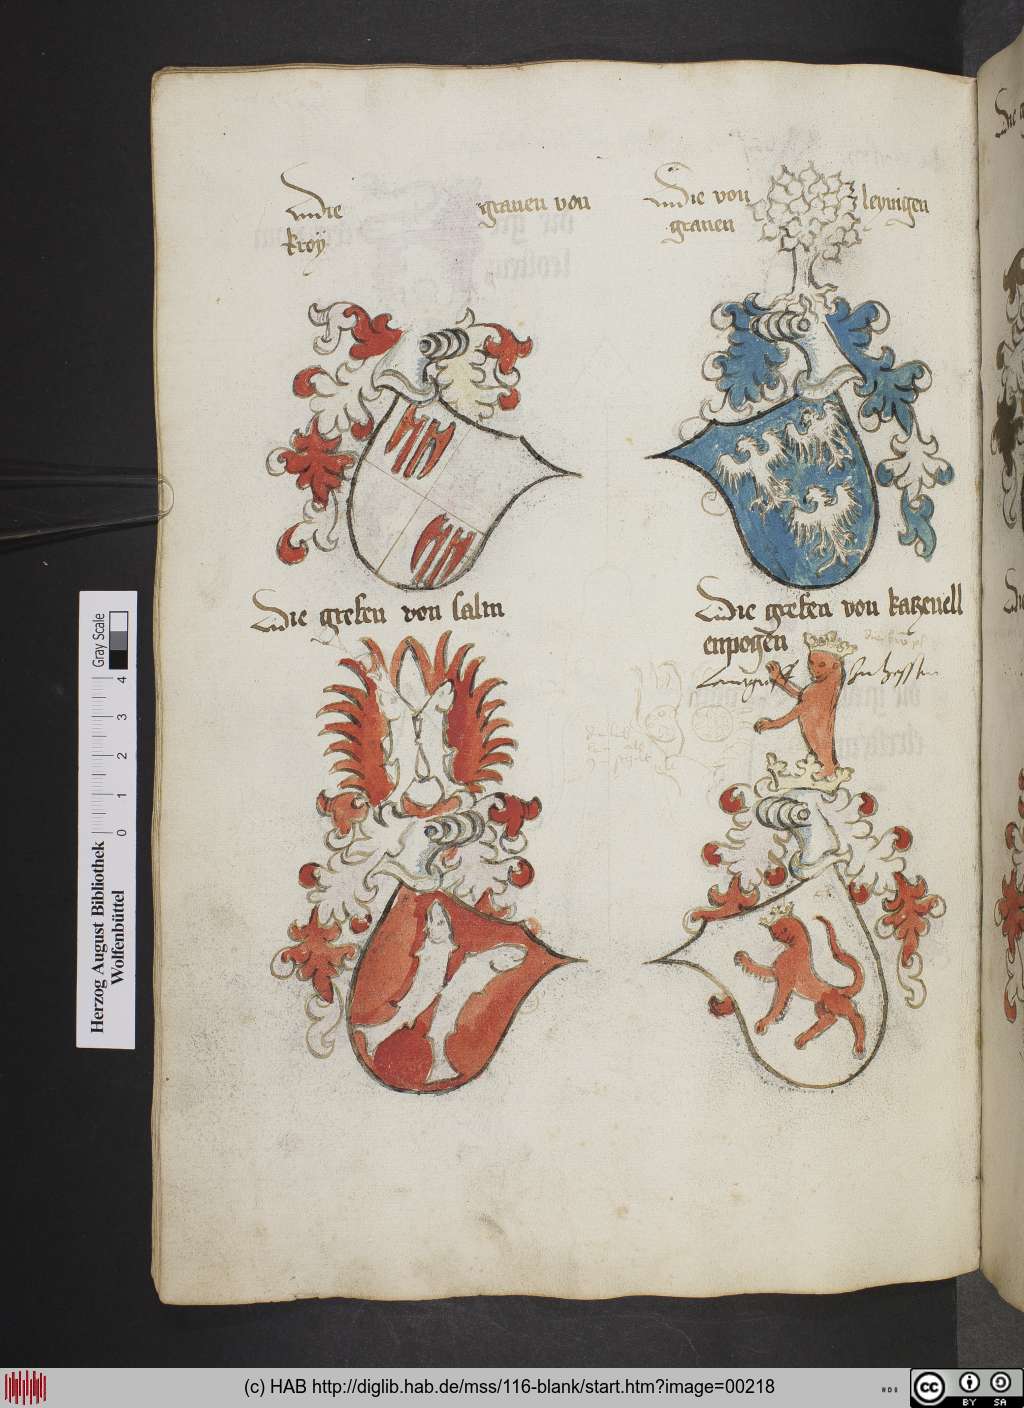 Die grauen von
kroy
Die von leyningen
grauen
Die grefen von salm
Die grefen von katzenell
enpogen
Gray Scale
0 1 2 3 4
Herzog August Bibliothek
Wolfenbüttel
(c) HAB http://diglib.hab.de/mss/116-blank/start.htm?image=00218
cc
BY SA